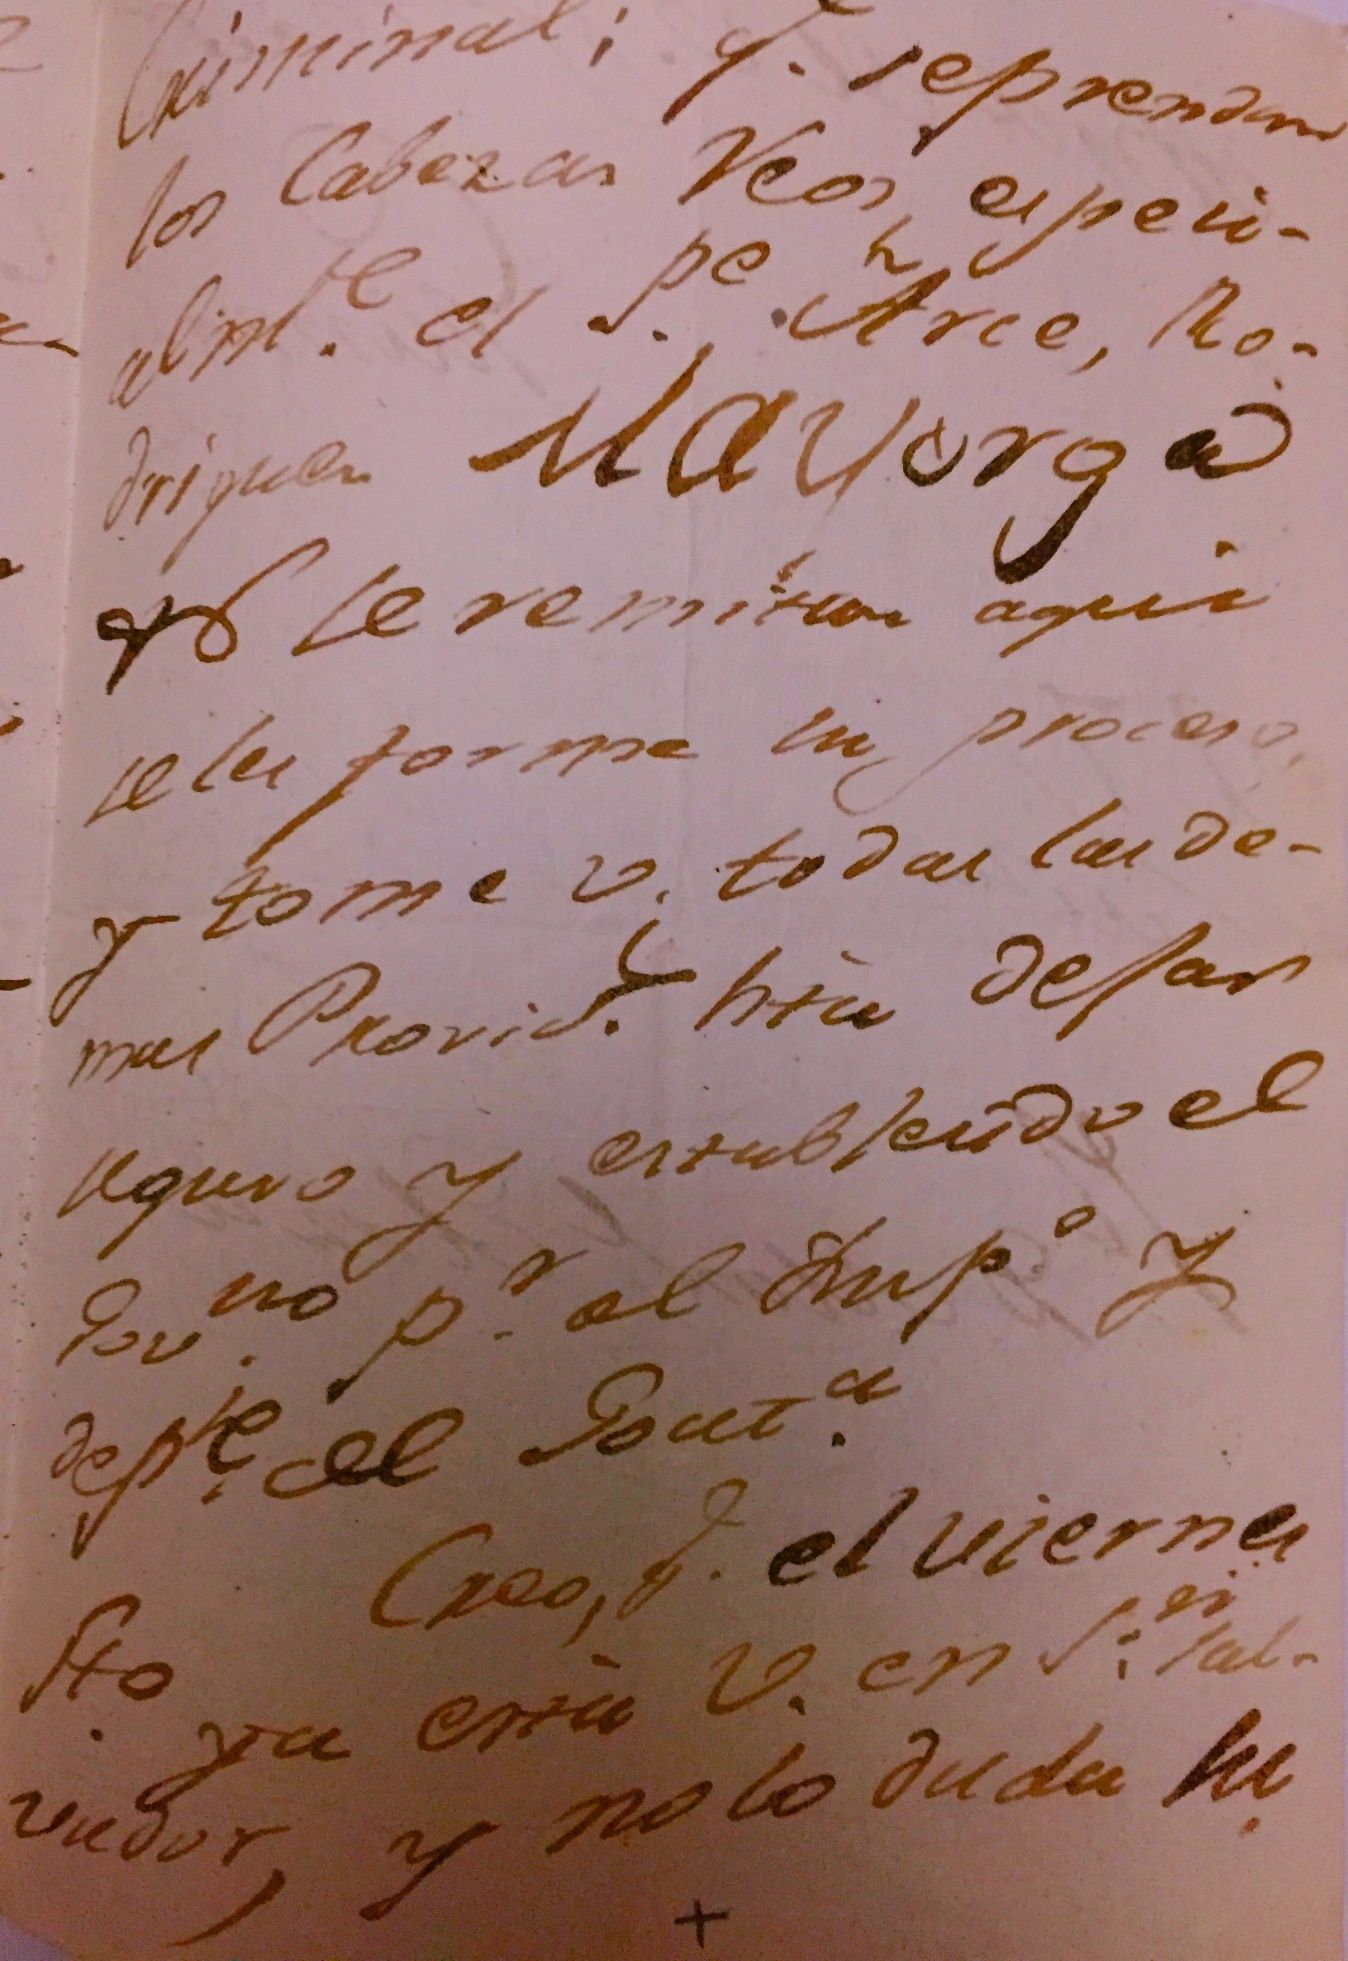 Criminal; q.e se prendan
los Cabezas Reos, especi-
alm.te el P.e Arce, Ro-
driguez Mayorga
y se remitan aqui
se les forme su proceso,
y tome V. todas las de-
mas Provid.s hta dejar
seguro y establecido el
Gov.no p.r el Imp.o y
dep.te el Goat.a
Creo, q.e el viernes
Sto ya está V. en S.n Sal-
vador, y no lo duda su
+